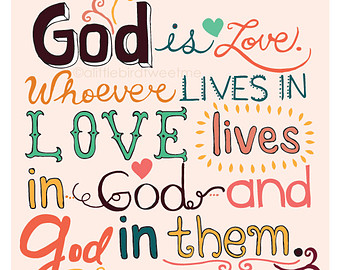 God is Love.
©alittlebirdtweetme
Whoever LIVES IN
LOVE lives
in God and
god in them.